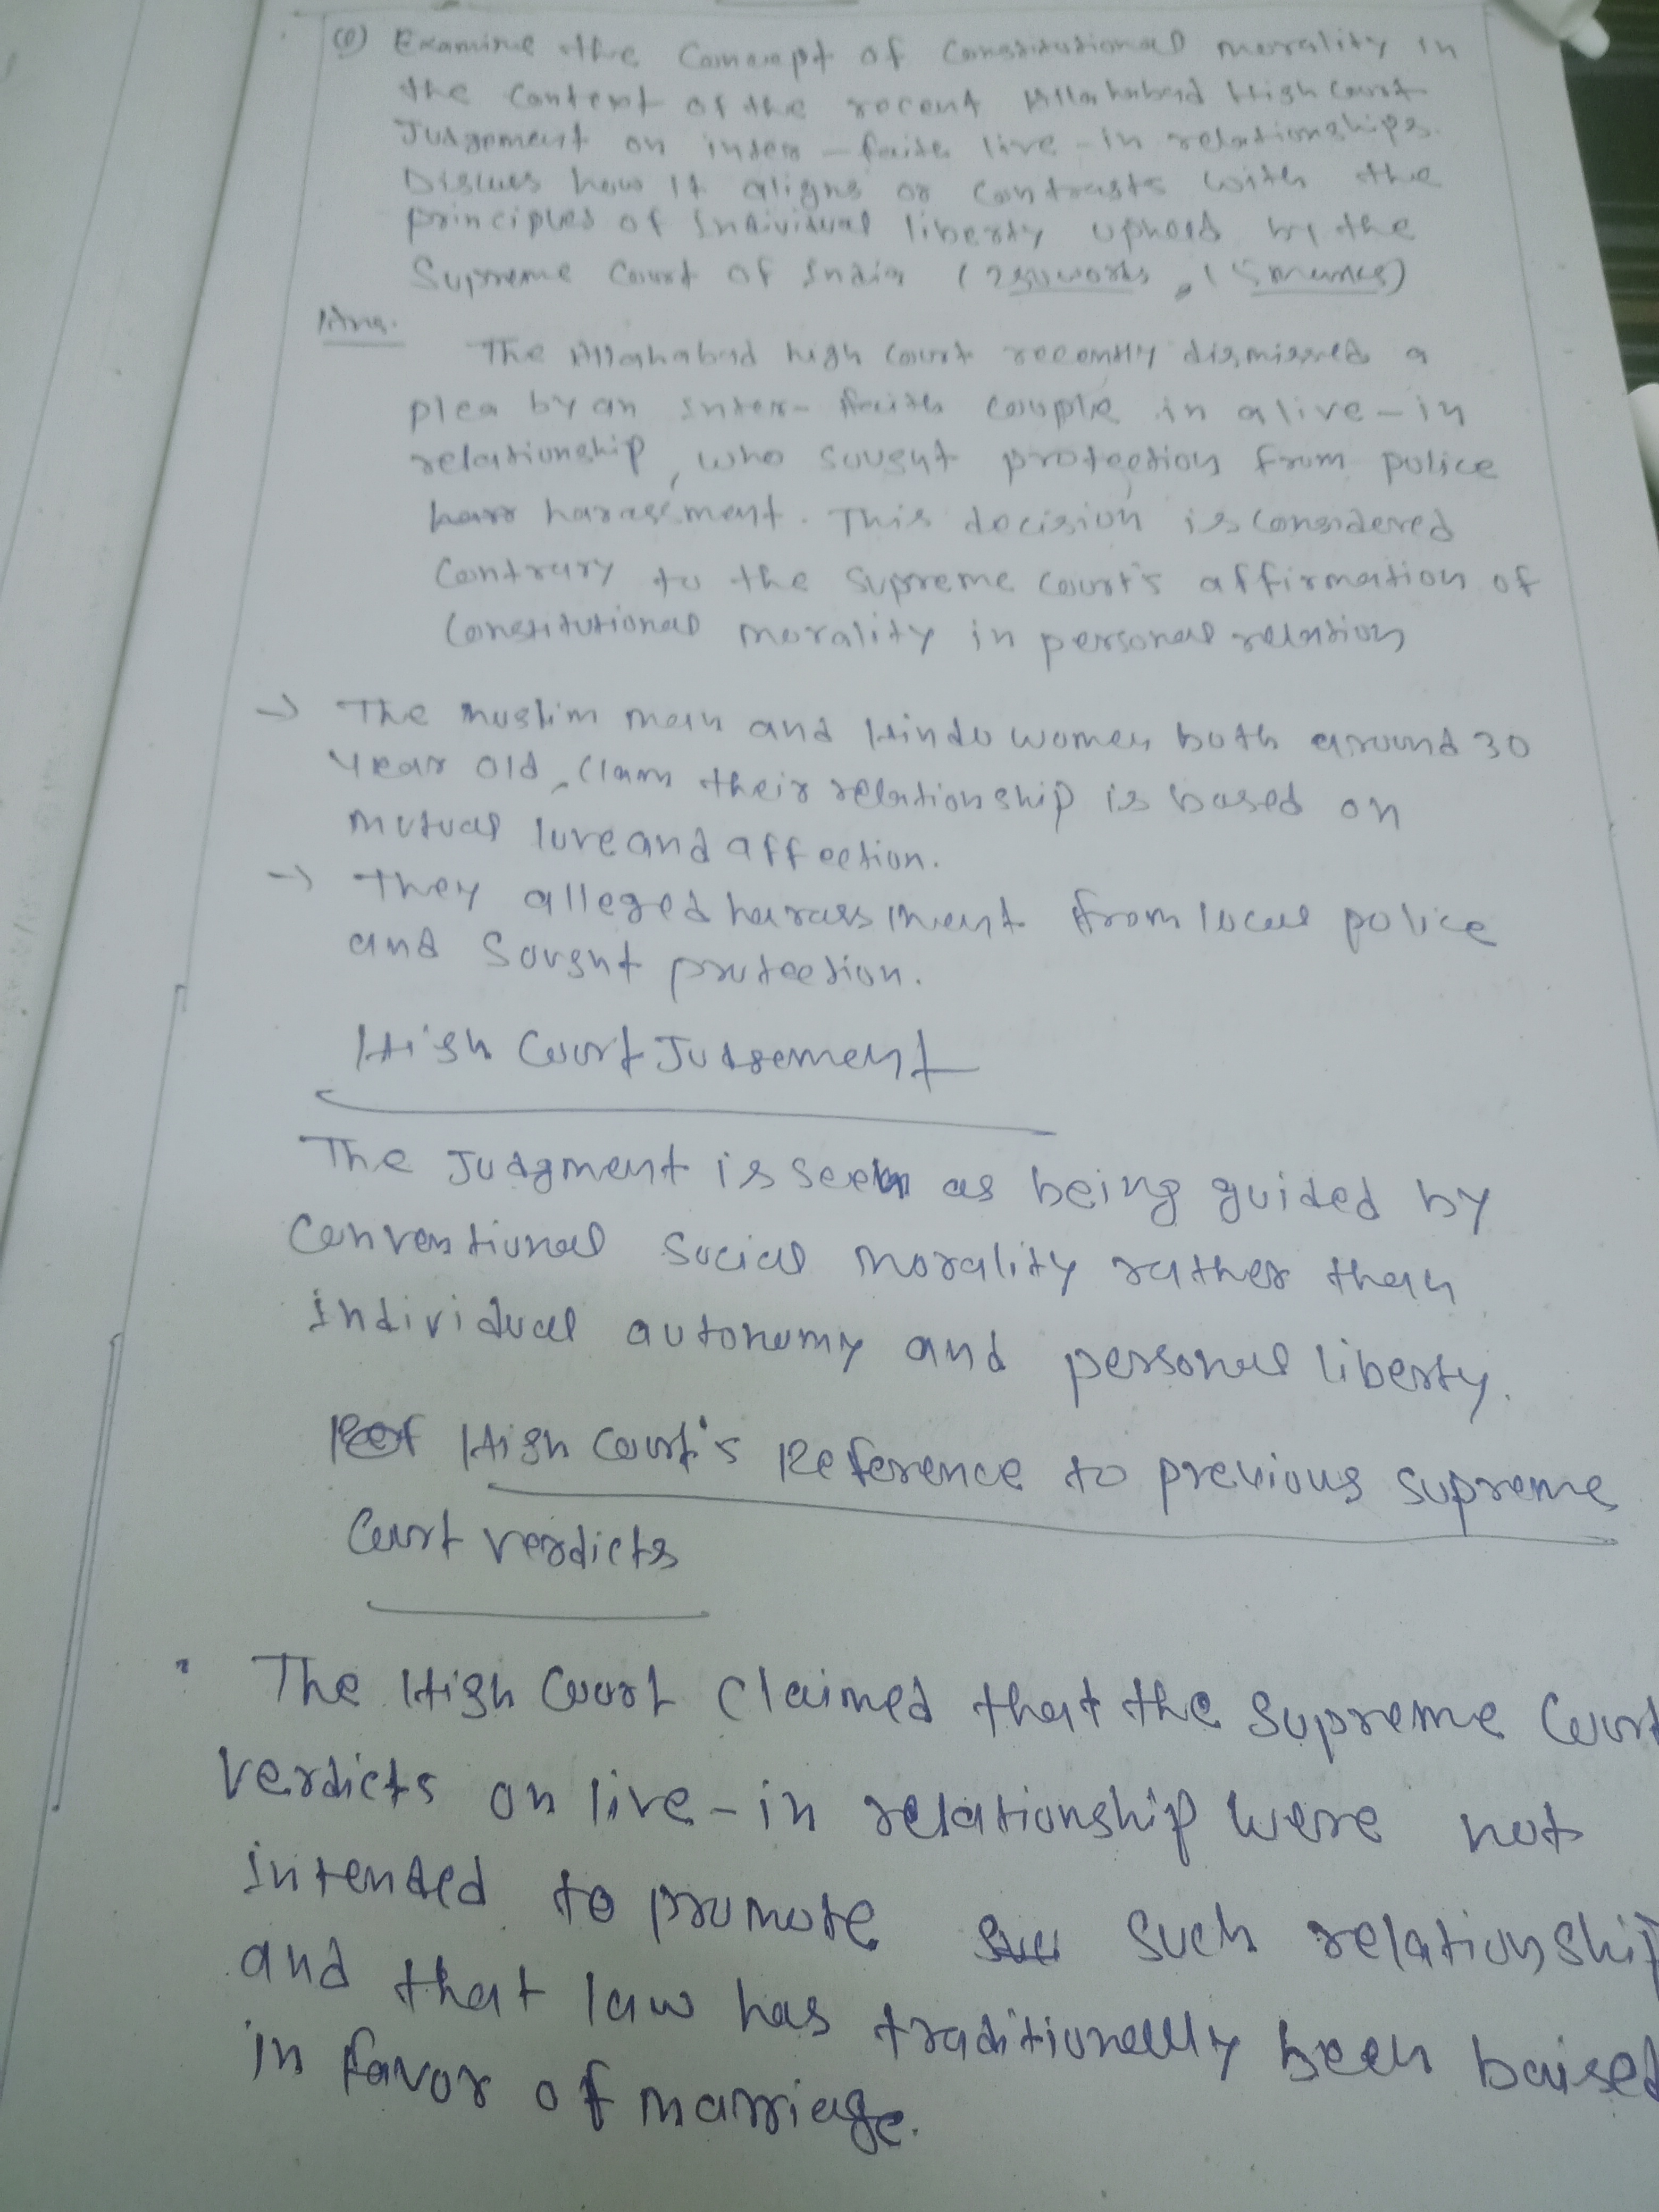 (Q) Examine the Concept of Constitutional morality in
the Context of the recent Allahabad High Court
Judgement on inter-faith live-in relationships.
Discuss how it aligns or contrasts with the
principles of Individual liberty upheld by the
Supreme Court of India (250 words, 15 marks)
Ans.
The Allahabad high Court recently dismissed a
plea by an inter-faith couple in a live-in
relationship, who sought protection from police
harassment. This decision is considered
Contrary to the Supreme Court's affirmation of
Constitutional morality in personal relation
→ The muslim man and Hindu women both around 30
year old, Claim their relationship is based on
mutual love and affection.
→ They alleged harassment from local police
and Sought protection.
High Court Judgement
The Judgment is seen as being guided by
Conventional Social morality rather than
individual autonomy and personal liberty.
High Court's Reference to previous supreme
Court verdicts
• The High Court Claimed that the Supreme Court
verdicts on live-in relationship were not
intended to promote such relationship
and that law has traditionally been baised
in favor of marriage.